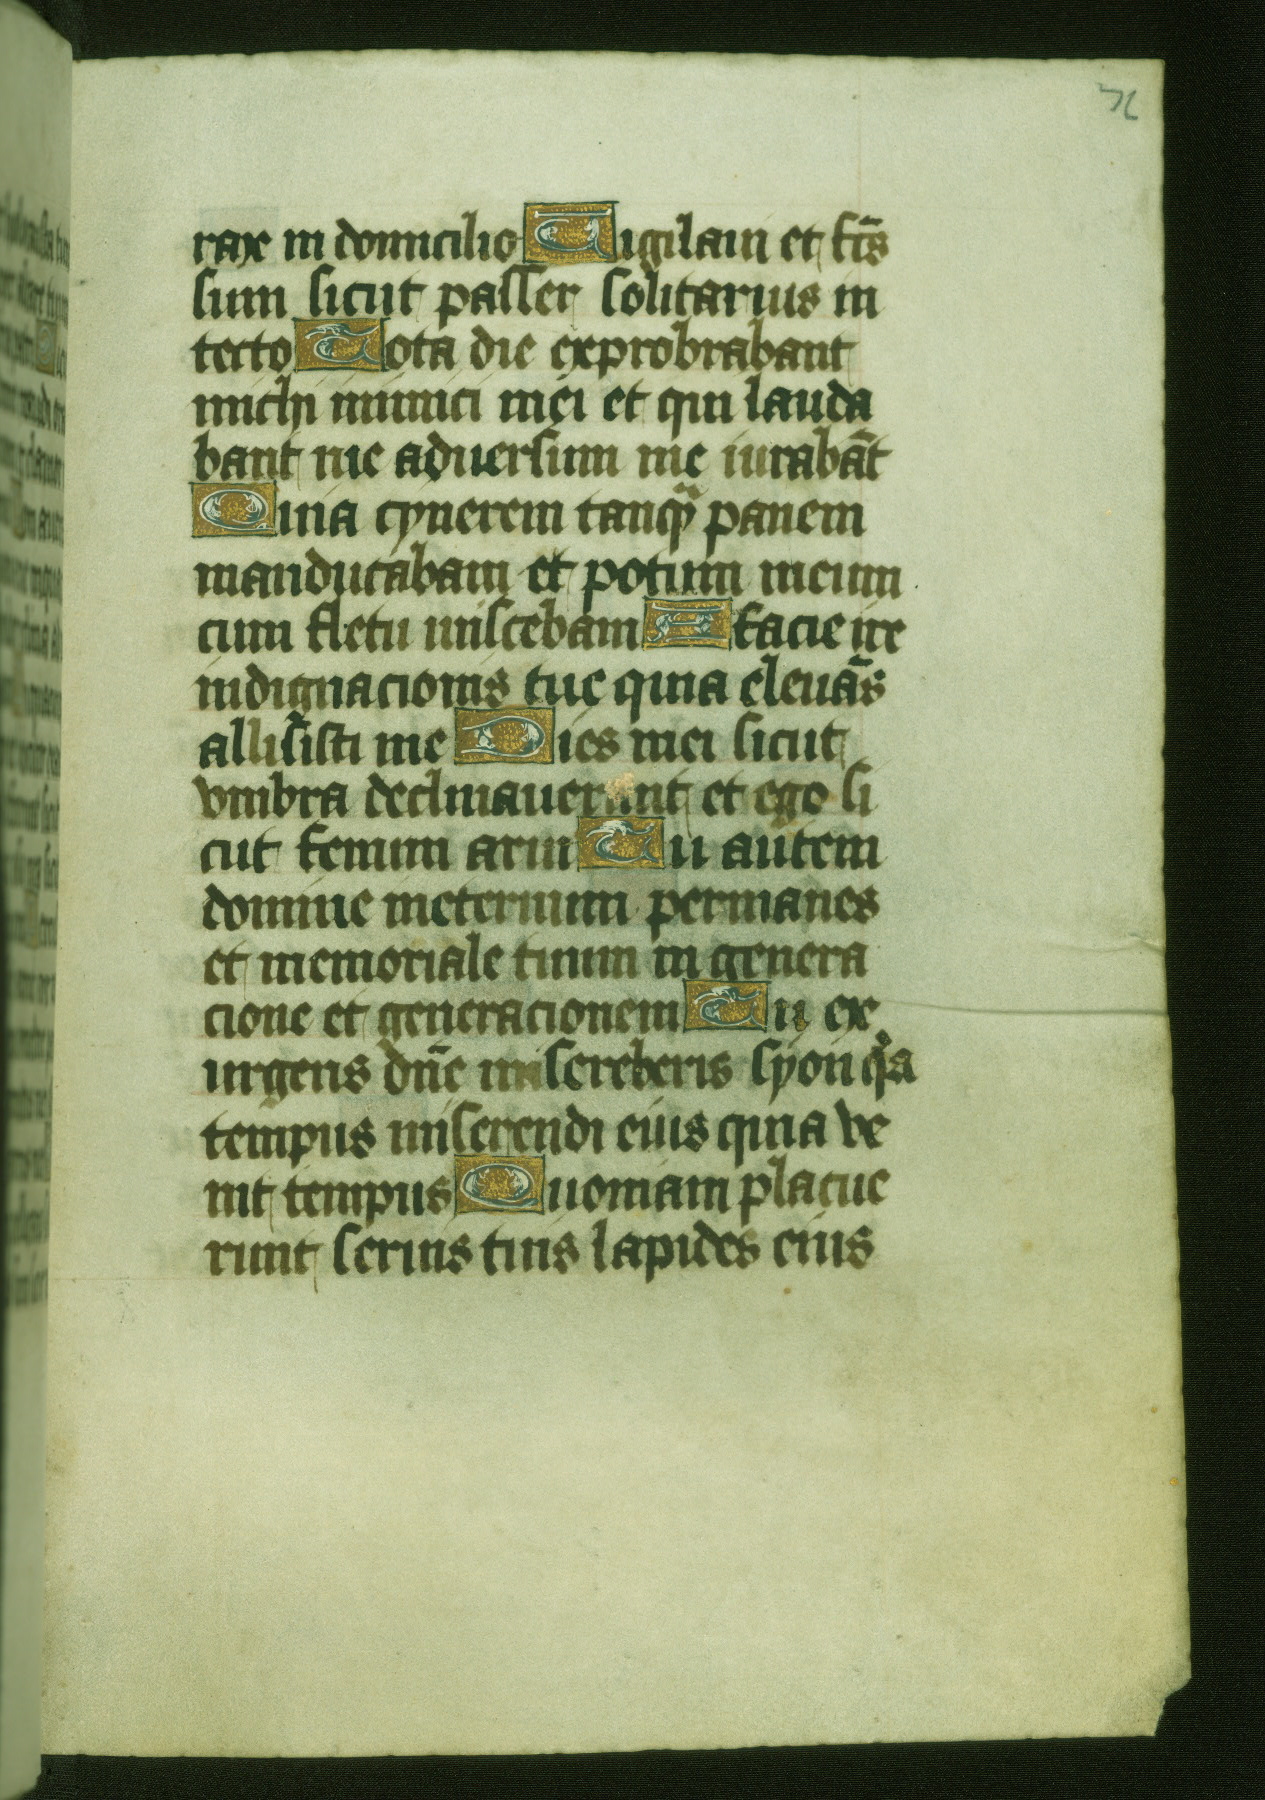 76
rax in domicilio Uigilaui et fc̄s
sum sicut passer solitarius in
tecto Tota die exprobrabant
michi inimici mei et qui lauda
bant me aduersum me iurabāt
Quia cynerem tanqȝ̄ panem
manducabam et potum meum
cum fletu miscebam A facie ire
indignacionis tue quia eleuās
allisisti me Dies mei sicut
vmbra declinauerunt et ego si
cut fenum arui Tu autem
domine ineternum permanes
et memoriale tuum in genera
cione et generacionem Tu ex
urgens dn̄e misereberis syon qͣa
tempus miserendi eius quia ve
nit tempus Quoniam placue
runt seruis tuis lapides eius